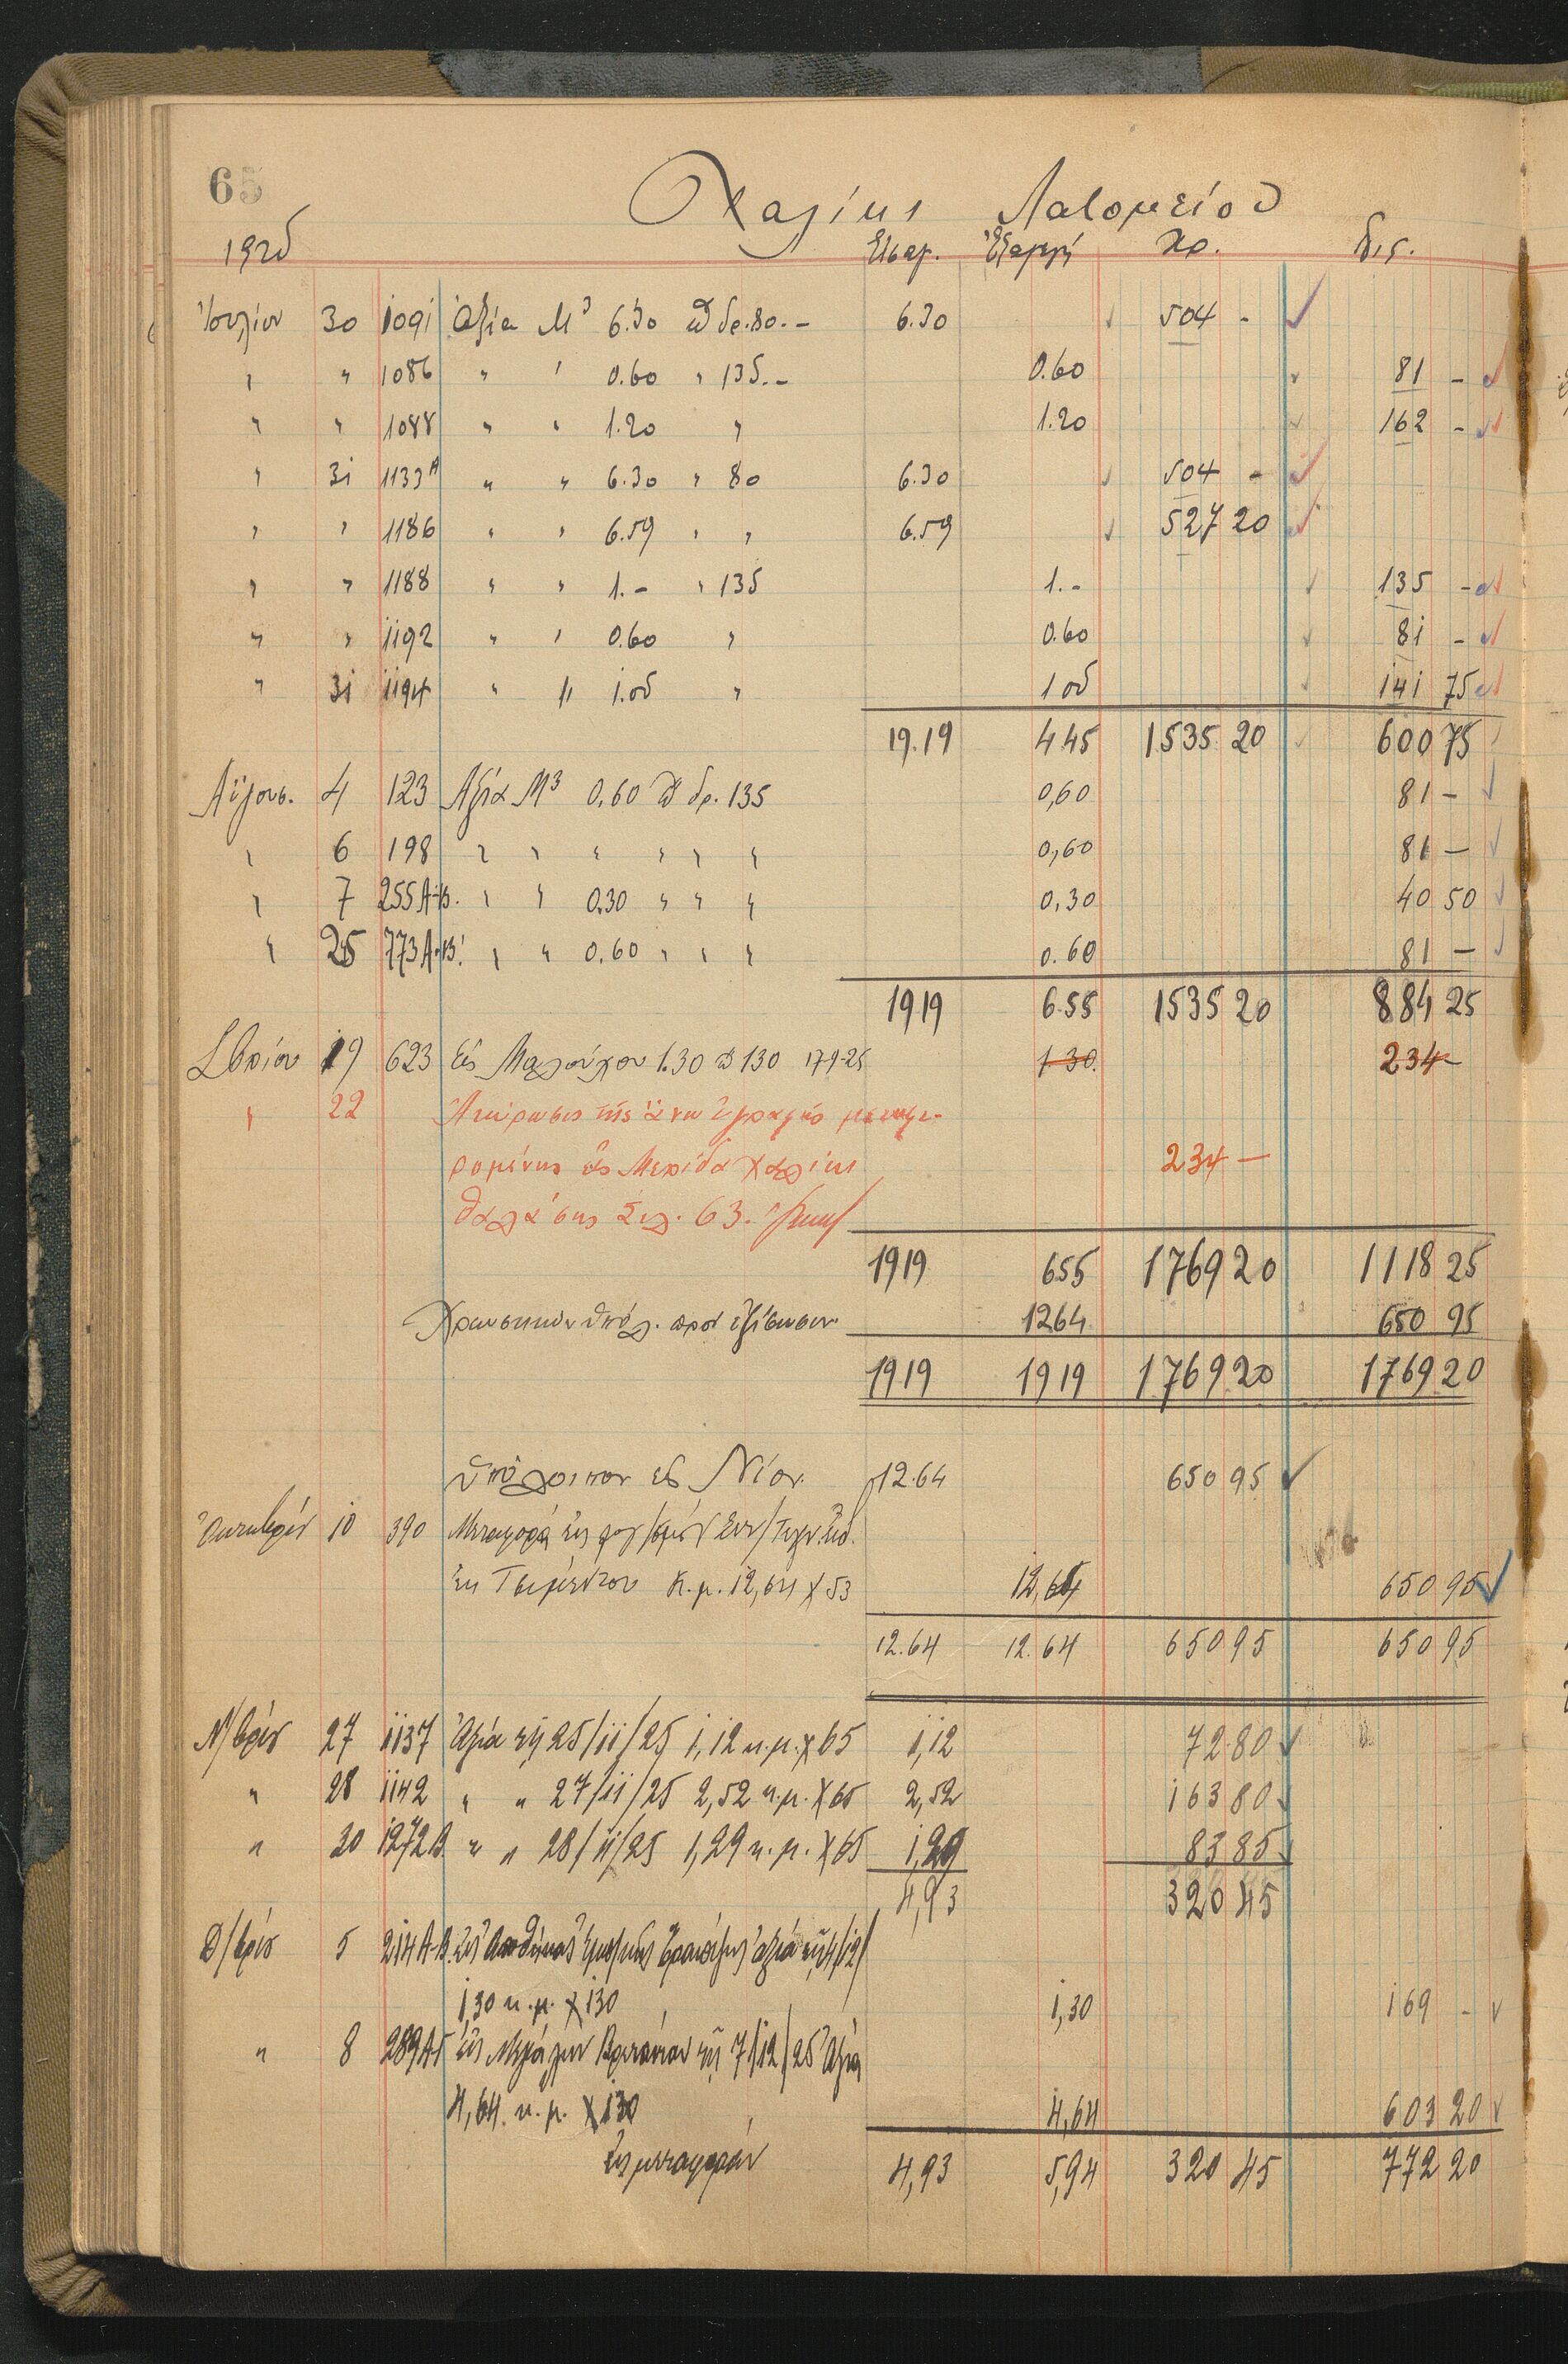 65
Χαλίκι Λατομείου
1925 Εἰσαγ. Ἐξαγωγή Χρ. Πις.
Ἰουλίου 30 1091 Ἀξία Μ³ 6.30 @ δρ. 80.- 6.30 504 -
" " 1086 " " 0.60 " 135.- 0.60 81 -
" " 1088 " " 1.20 " 1.20 162 -
" 31 1133Α " " 6.30 " 80 6.30 504 -
" " 1186 " " 6.59 " " 6.59 527 20
" " 1188 " " 1.- " 135 1.- 135 -
" " 1192 " " 0.60 " 0.60 81 -
" 31 1194 " " 1.05 " 1.05 141 75
19.19 4.45 1535 20 600 75
Αὔγουσ. 4 123 Ἀξία Μ³ 0.60 @ δρ. 135 0,60 81 -
" 6 198 " " " " " " 0,60 81 -
" 7 255 Α-Β. " " 0.30 " " " 0,30 40 50
" 25 773 Α-Β' " " 0.60 " " " 0.60 81 -
1919 6.55 1535 20 884 25
Σ/βρίου 19 623 Εἰς 1.30 @ 130 179-25 1.30 234 -
" 22 Ἀκύρωσις τῆς ἄνω ἐγγραφῆς μεταφε-
ρομένης εἰς Μερίδα Χαλίκι 234 -
Θαλάσσης Σελ. 63.
1919 655 1769 20 1118 25
Χρεωστικὸν ὑπόλ. πρὸς ἐξίσωσιν 1264 650 95
1919 1919 1769 20 1769 20
Ὑπόλοιπον εἰς Νέον 12.64 650 95
Ὀκτωβρίου 10 390 Μεταφορὰ εἰς
ἐκ Τσιμέντου κ.μ. 12,64 Χ 53 12,64 650 95
12.64 12.64 650 95 650 95
Ν/βρίου 27 1137 Ἀξία τῇ 25/11/25 1,12 κ.μ. Χ 65 1,12 72 80
" 28 1142 " " 27/11/25 2,52 κ.μ. Χ 65 2,52 163 80
" 30 1272Β " " 28/11/25 1,29 κ.μ. Χ 65 1,29 83 85
4,93 320 45
Δ/βρίου 5 214 Α-Β. Εἰς Ἀποθήκας Τραπέζης ἀξία τῇ 4/12/
1,30 κ.μ. Χ 130 1,30 169 -
" 8 289 Εἰς Μεγάλην Βρετανίαν τῇ 7/12/25 Ἀξία
4,64 κ.μ. Χ 130 4,64 603 20
Εἰς μεταφοράν 4,93 5,94 320 45 772 20